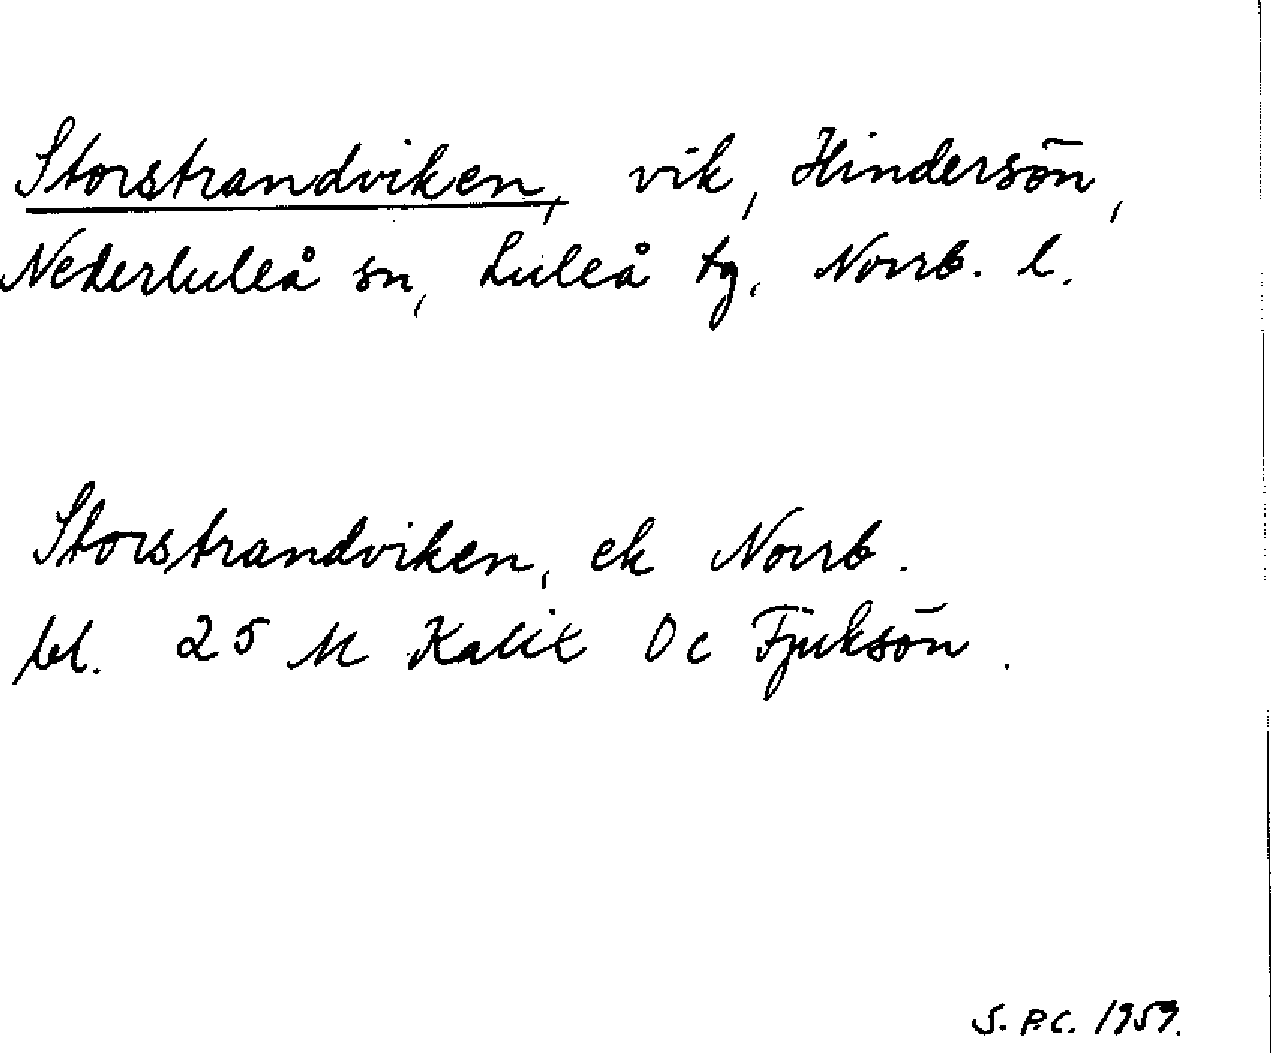 Storstrandviken, vik, Hindersön,
Nederluleå sn, Luleå tg, Norrb. l.
Storstrandviken, ek Norrb.
bl. 25 M Kalix Oc Fjuksön.
S.P.C. 1959.